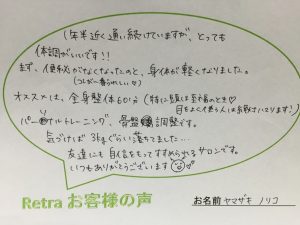 1年半近く通い続けていますが、とっても
体調がいいです!!
まず、便秘がなくなったのと、身体が軽くなりました。
(コレが一番うれしい♡)
オススメは、全身整体60分(特に頭は至福のとき♡
目をよく使う人は余計さわります!)
パーソナルトレーニング、骨盤調整です。
気づけば3kgぐらい落ちてました…
友達にも自信をもってすすめられるサロンです。
いつもありがとうございます
Retra お客様の声
お名前 ヤマザキ ノリコ